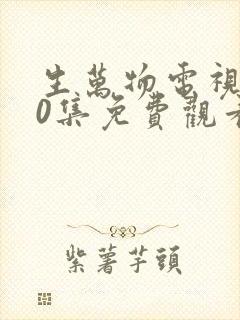 生萬物電視
0集免費觀看
紫薯芋頭